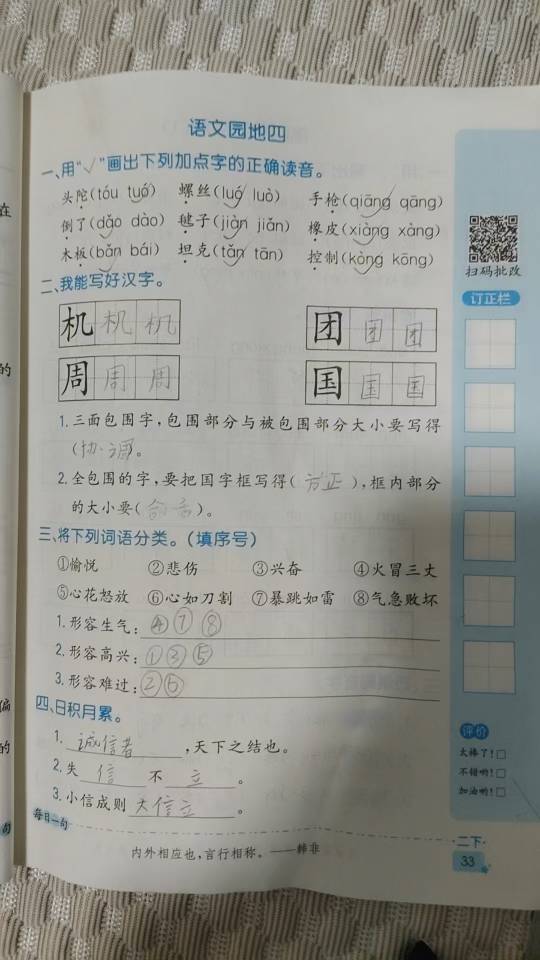 语文园地四
一、用“√”画出下列加点字的正确读音。
头陀(tóu tuó) 螺丝(luó luò) 手枪(qiāng qāng)
倒了(dǎo dào) 毽子(jiàn jiǎn) 橡皮(xiàng xàng)
木板(bǎn bái) 坦克(tǎn tān) 控制(kòng kōng)
二、我能写好汉字。
机 机 机 团 团 团
周 周 周 国 国 国
1.三面包围字,包围部分与被包围部分大小要写得
(协调)。
2.全包围的字,要把国字框写得(方正),框内部分
的大小要(合适)。
三、将下列词语分类。(填序号)
①愉悦 ②悲伤 ③兴奋 ④火冒三丈
⑤心花怒放 ⑥心如刀割 ⑦暴跳如雷 ⑧气急败坏
1.形容生气:④⑦⑧
2.形容高兴:①③⑤
3.形容难过:②⑥
四、日积月累。
1.诚信者,天下之结也。
2.失信不立。
3.小信成则大信立。
每日一句
内外相应也,言行相称。——韩非
扫码批改
订正栏
评价
太棒了!□
不错哟!□
加油哟!□
二下
33
在
的
偏
的
句